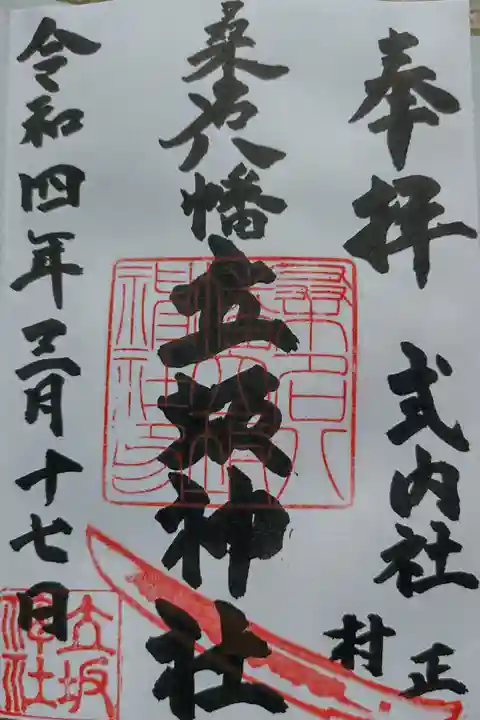 奉拝 式内社
村正
桑名八幡
立坂神社
令和四年三月十七日
立坂神社